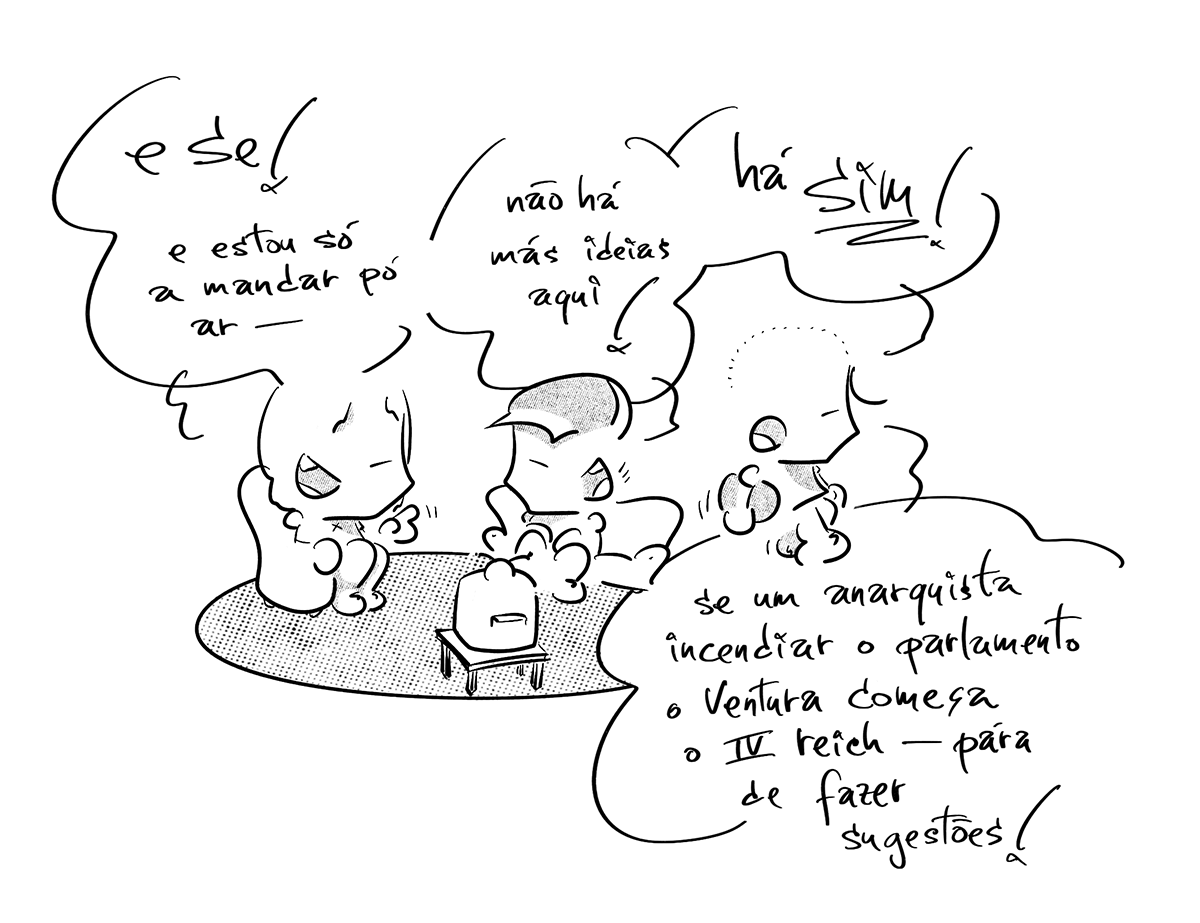 e se!
e estou só
a mandar pó
ar —
não há
más ideias
aqui!
há sim!
se um anarquista
incendiar o parlamento
o Ventura começa
o IV reich — pára
de fazer
sugestões!